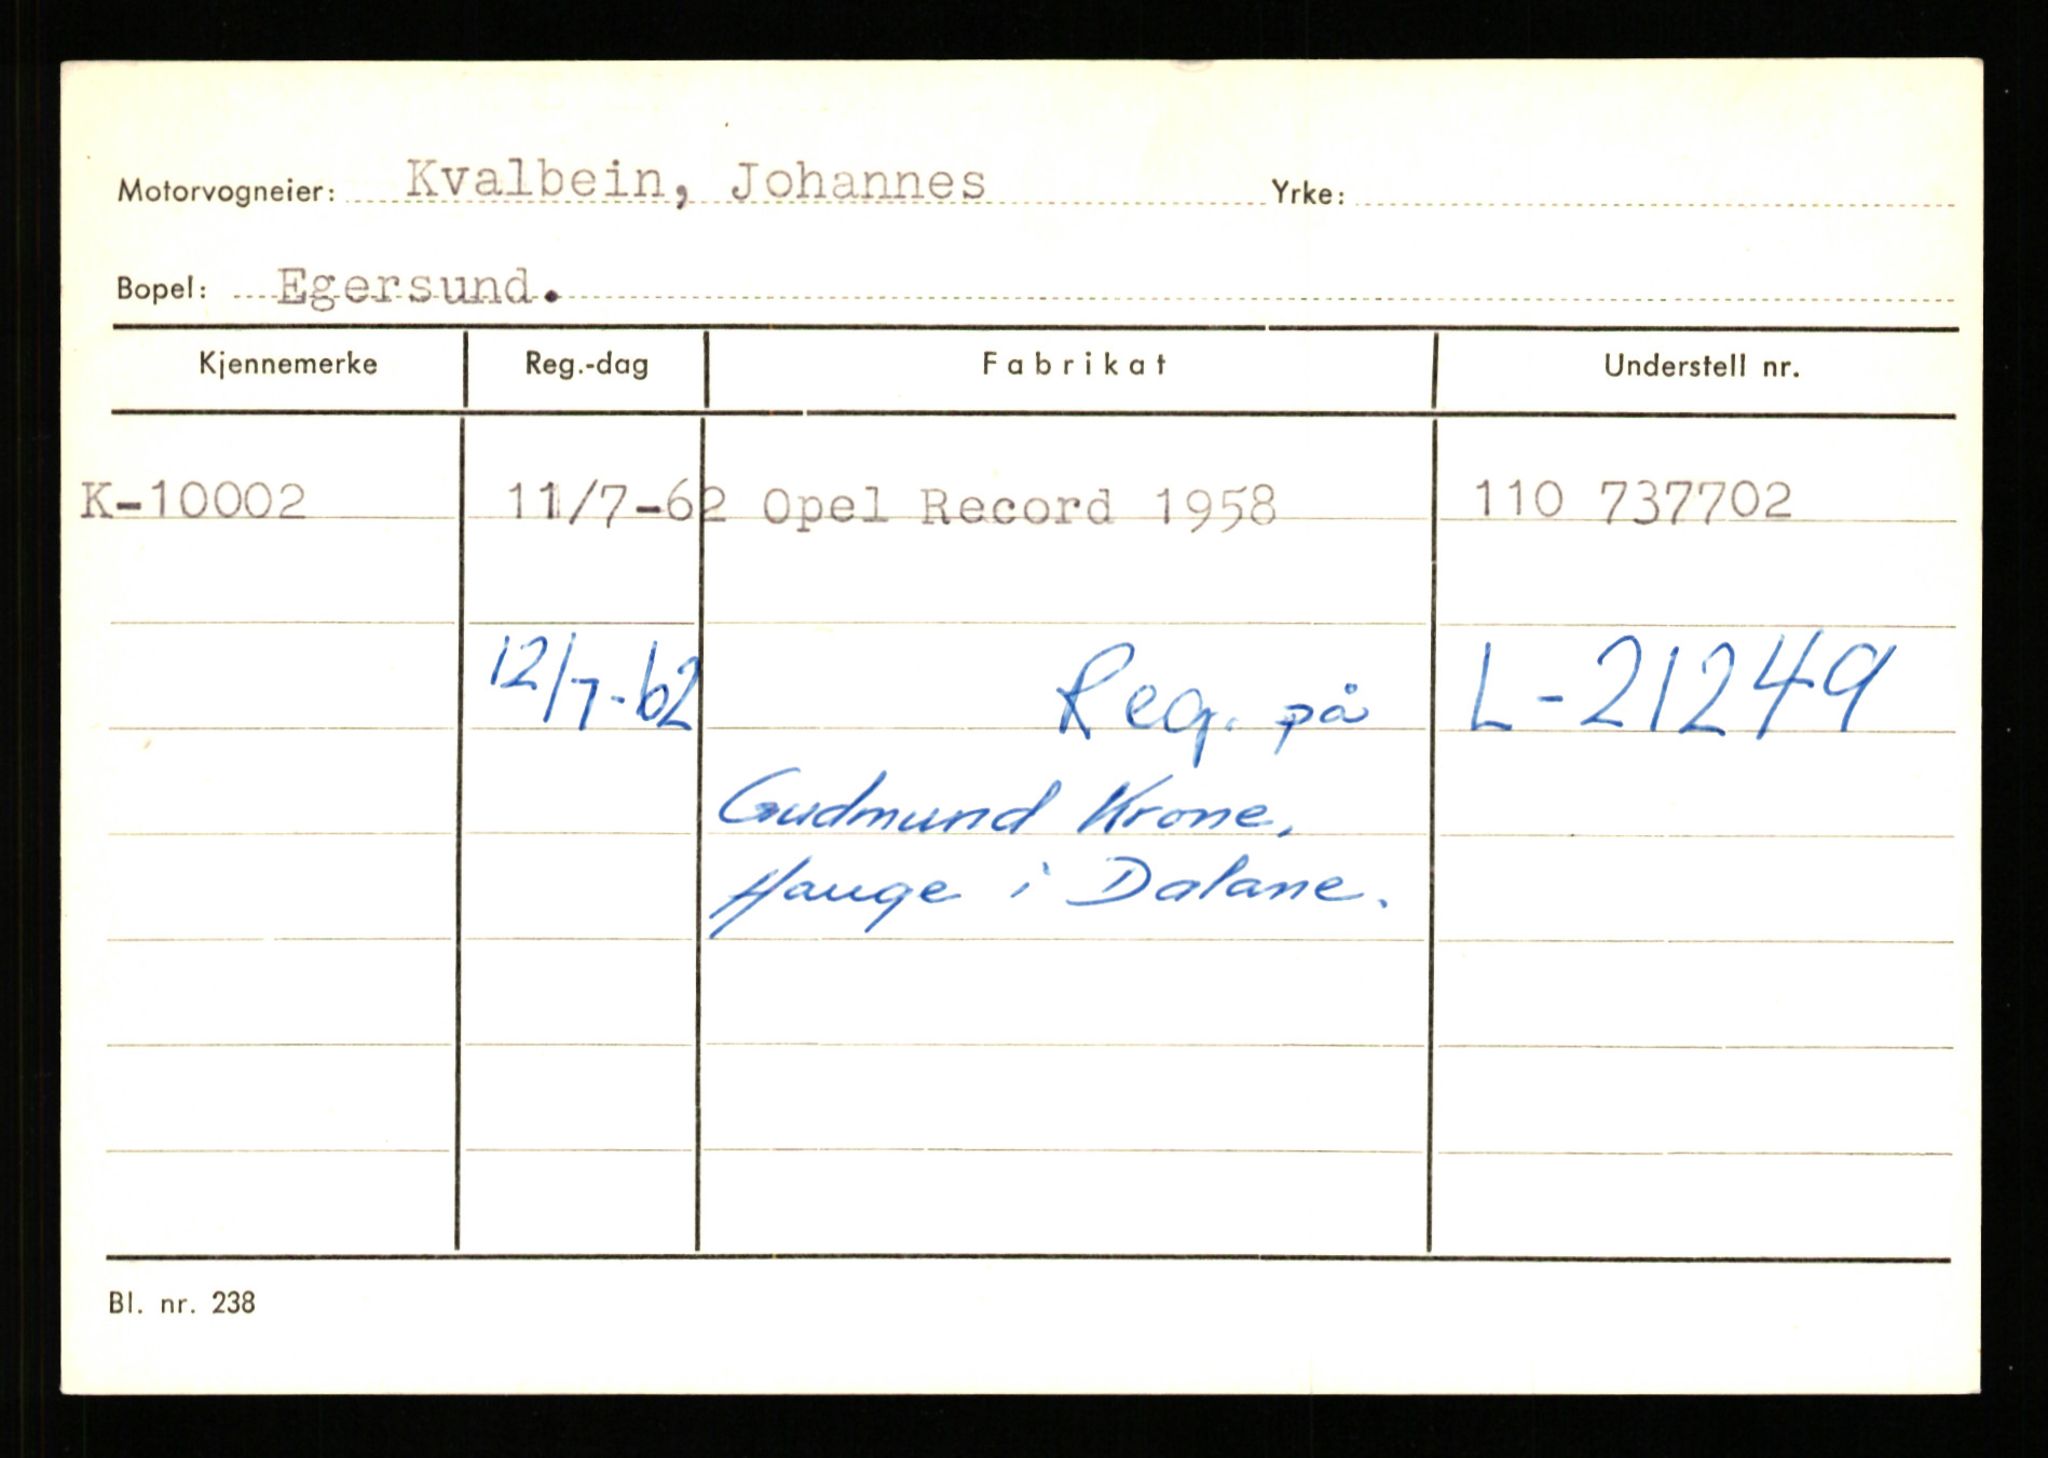 Motorvogneier: Kvalbein, Johannes Yrke:
Bopel: Egersund.
Kjennemerke Reg.-dag Fabrikat Understell nr.
K-10002 11/7-62 Opel Record 1958 110 737702
12/7-62 Reg. på L-21249
Gudmund Krone,
Hauge i Dalane.
Bl. nr. 238